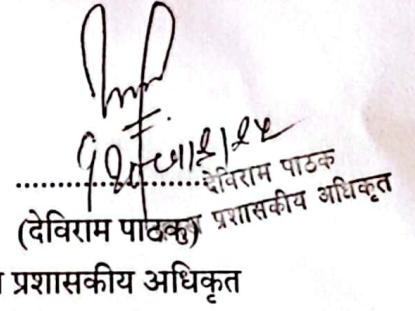 देविराम पाठक
प्रशासकीय अधिकृत
(देविराम पाठक)
प्रशासकीय अधिकृत